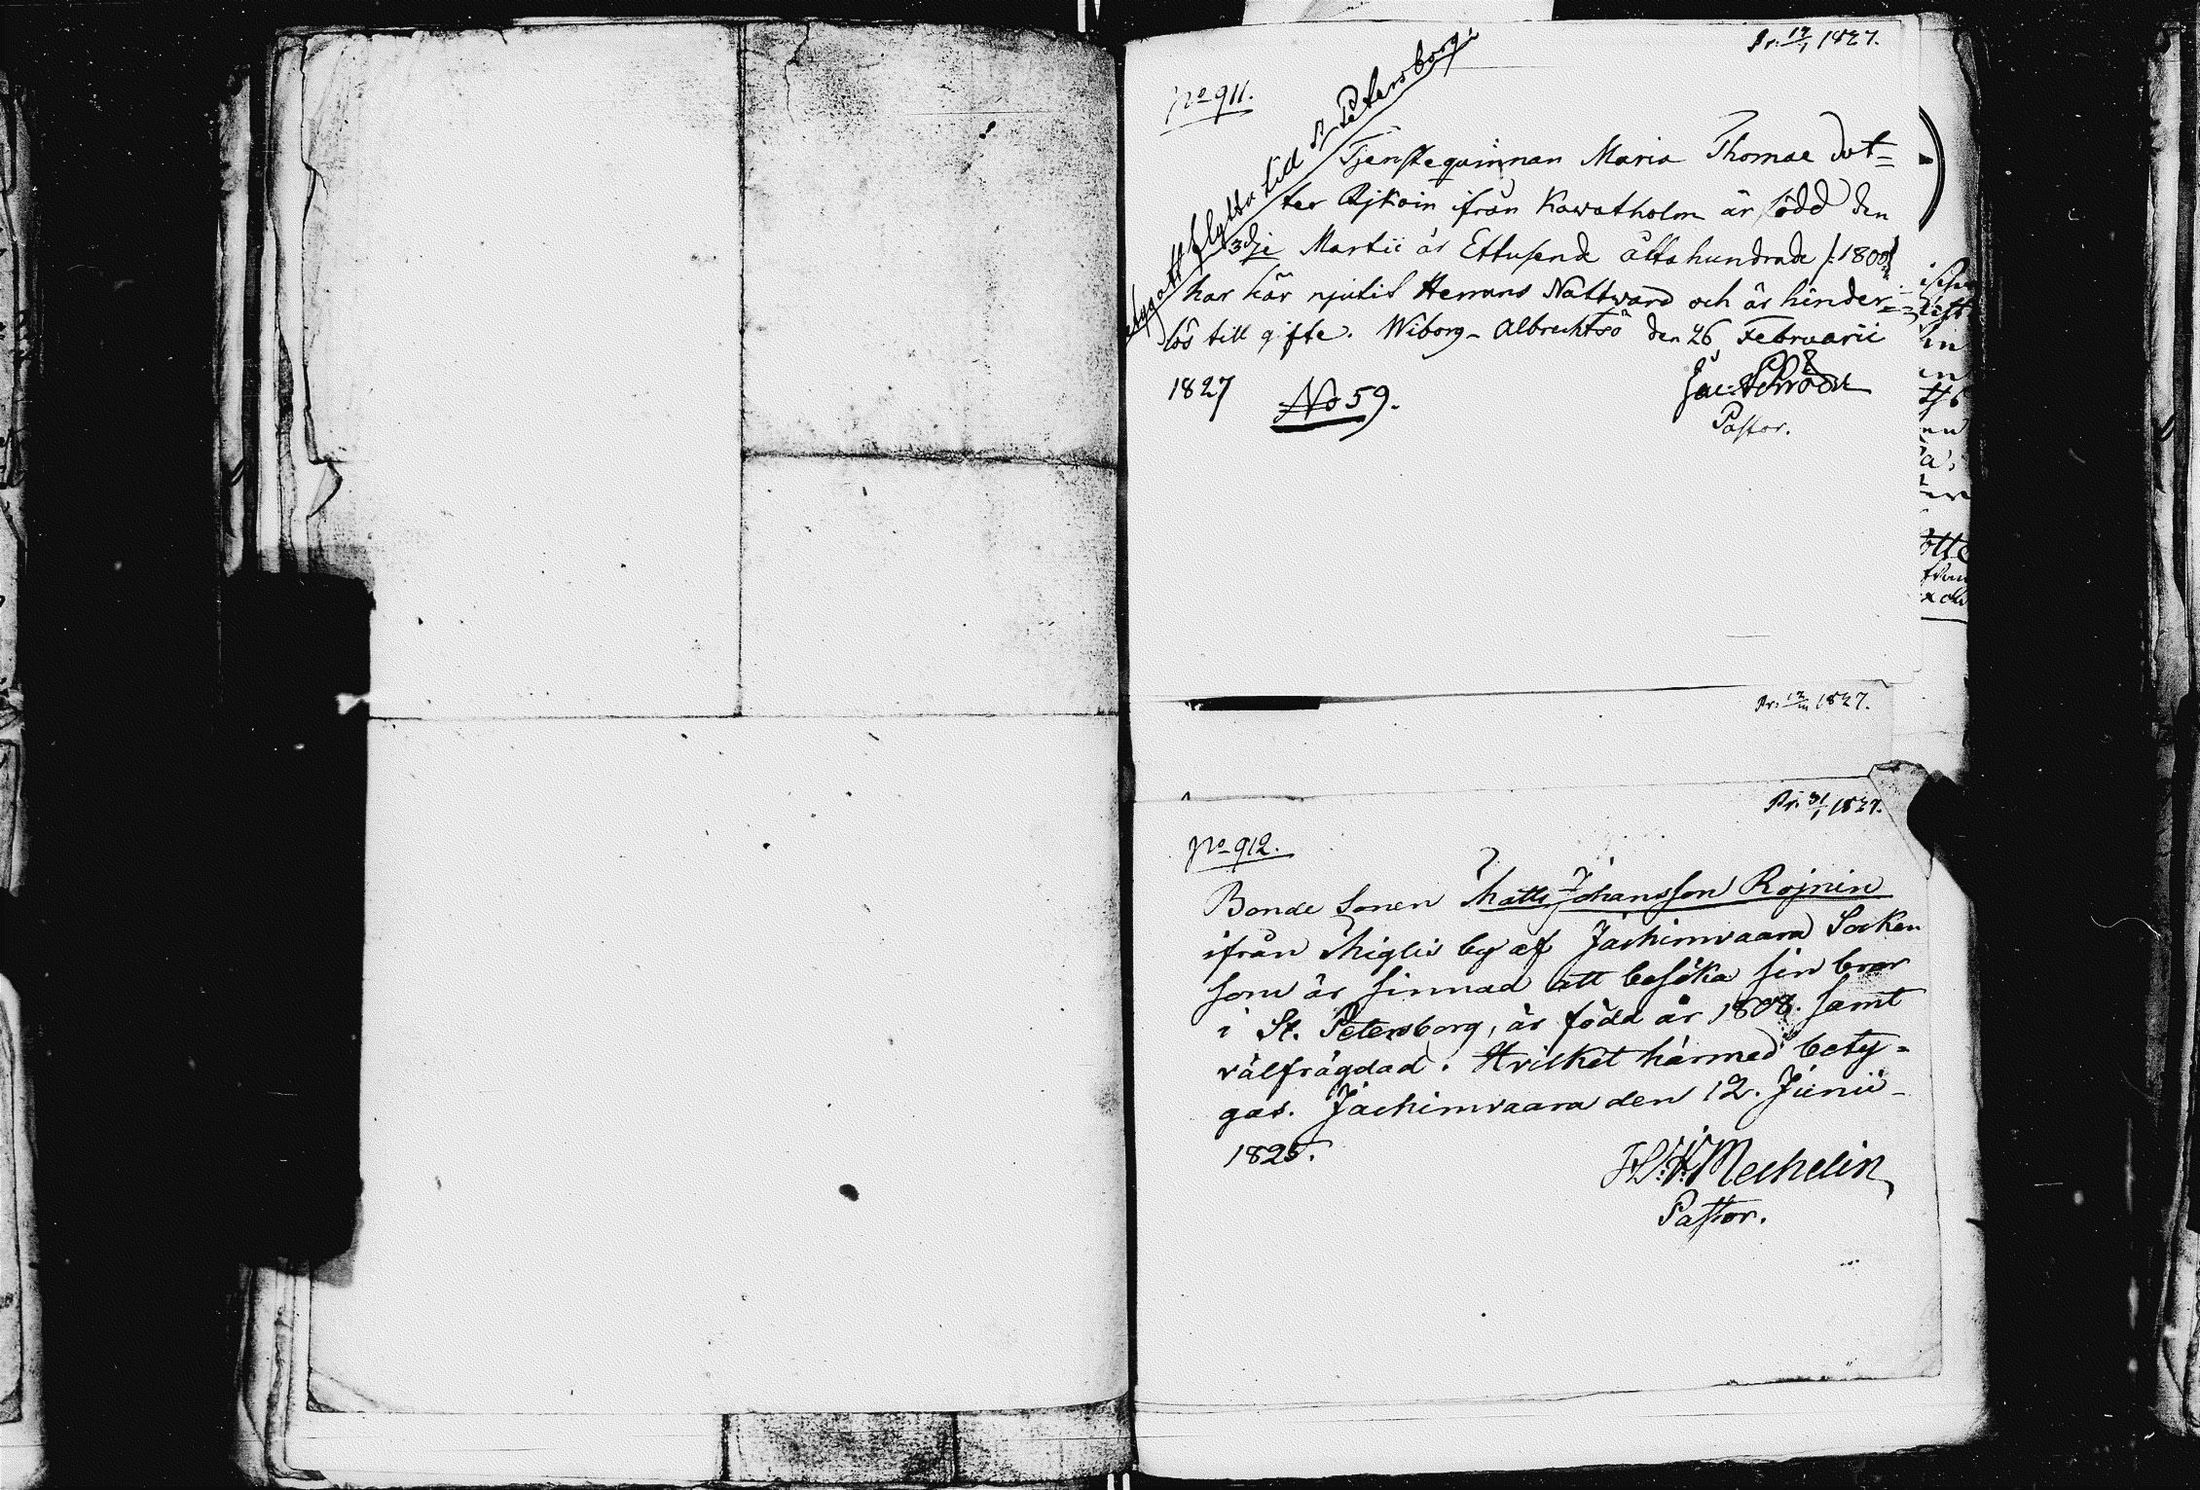 Pr. 17/1 1827.
No 911.
att flytta till St Petersborg
Tjenstequinnan Maria Thomae dot=
ter Ajkain ifrån Kawatholm är född den
3dje Martii år Ettusende åttahundrade /:1800:/
har här njutit Herrans Nattward och är hinder=
lös till gifte. Wiborg - Albrechtsö den 26 Februarii
1827
No 59.
Jac: Schröder
Pastor.
1827.
Pr. 31/1 1827.
No 912.
Bonde Sonen Matts Johansson Rojnin
ifrån Miglis by af Jackimvaara Socken
som är sinnad att besöka sin bror
i St. Petersborg, är född år 1808. samt
välfrägdad. Hvilket härmed bety=
gas. Jackimvaara den 12. Junii
1825.
Mechelin
Pastor.